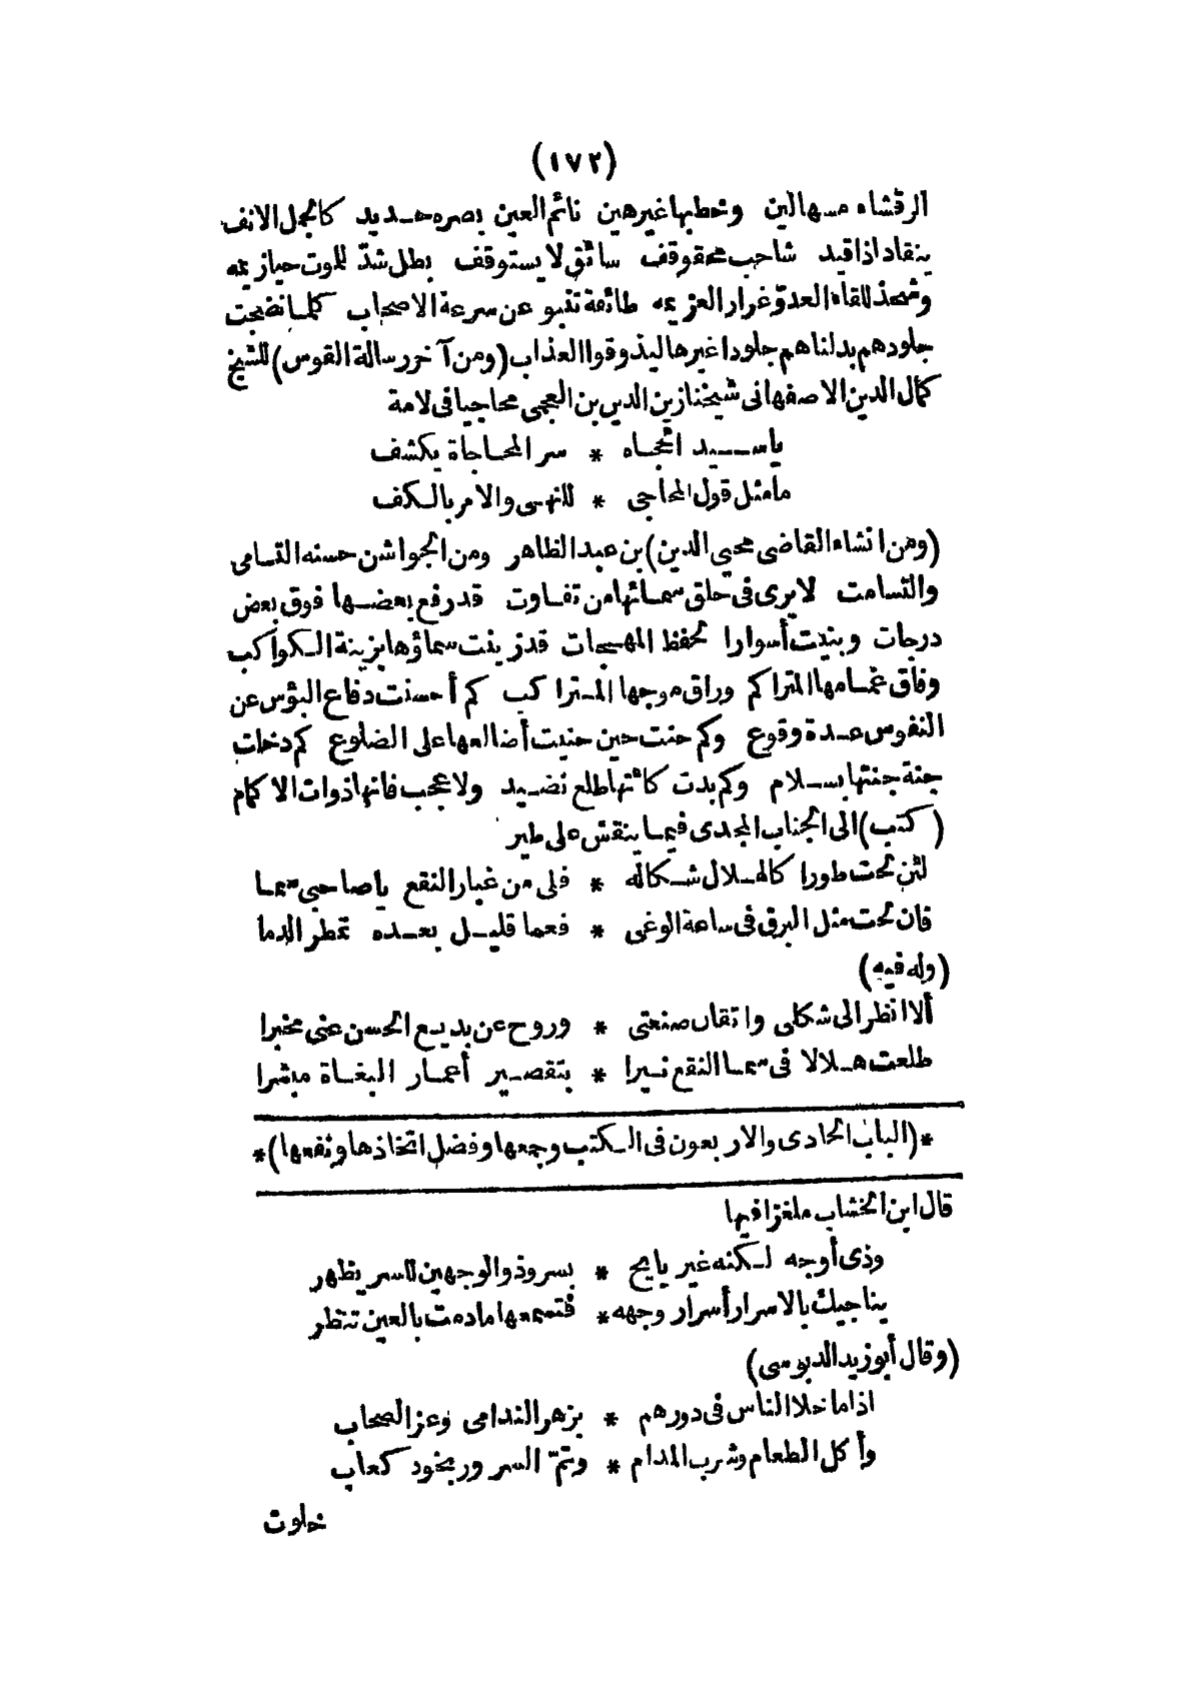 (١٧٢)
الرقشاء مسهالين وخطبها غير هين نائم العين بصره حديد كالجمل الانف
ينقاد اذا قيد شاحب محقوقف سائق لا يستوقف بطل شدّ للموت حيازيمه
وشحذ للقاء العدوّ غرار العزيمه طائفة تنبو عن سرعة الاصحاب كلما نضجت
جلودهم بدلناهم جلودا غيرها ليذوقوا العذاب (ومن آخر رسالة القوس) للشيخ
كمال الدين الاصفهانى شيخنا زين الدين بن العجمى محاجيا فى لامة
يا سيد النجاه * سر المحاجاة يكشف
ما مثل قول المحاجى * للنهى والامر بالكف
(ومن انشاء القاضى محيى الدين) بن عبد الظاهر ومن الجواشن حسنه التسامى
والتسامت لا يرى فى حلق سمائها من تفاوت قد رفع بعضها فوق بعض
درجات وبنيت أسوارا لحفظ المهجات قد زينت سماؤها بزينة الكواكب
وفاق غمامها المتراكم وراق موجها المتراكب كم أحسنت دفاع البؤس عن
النفوس عدة وقوع وكم حنت حين حنيت أضالعها على الضلوع كم دخلت
جنة جنتها بسلام وكم بدت كأنها طلع نضيد ولا عجب فانها ذوات الاكمام
(كتب) الى الجناب المجدى فيما ينقش على طبر
لئن لحت طورا كالهلال شكالة * فلى من غبار النقع يا صاحبى سما
فان لحت مثل البرق فى ساعة الوغى * فعما قليل بعده تمطر الدما
(وله فيه)
ألا انظر الى شكلى واتقان صنعتى * وروح عن بديع الحسن عنى مخبرا
طلعت هلالا فى سما النقع نيرا * بتقصير أعمار البغاة مبشرا
*(الباب الحادى والاربعون فى الكتب وجمعها وفضل اتخاذها ونفعها)*
قال ابن الخشاب ملغزا فيها
وذى أوجه لكنه غير بايح * بسر وذو الوجهين للسر يظهر
يناجيك بالاسرار أسرار وجهه * فتسمعها مادمت بالعين تنظر
(وقال أبو زيد الدبوسى)
اذا ما خلا الناس فى دورهم * بزهر الندامى وعز الصحاب
وأكل الطعام وشرب المدام * وتمّ السرور بخود كعاب
خلوت